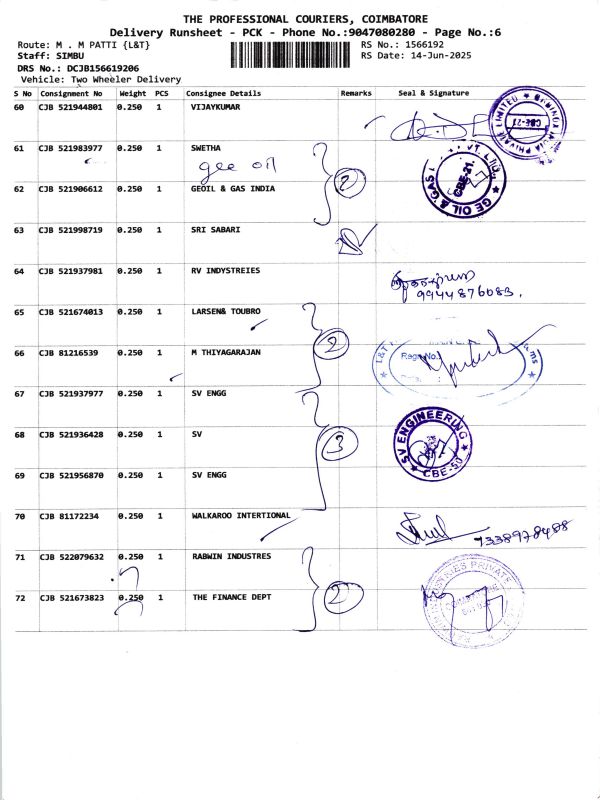 THE PROFESSIONAL COURIERS, COIMBATORE
Delivery Runsheet - PCK - Phone No.:9047080280 - Page No.:6
Route: M . M PATTI {L&T} RS No.: 1566192
Staff: SIMBU RS Date: 14-Jun-2025
DRS No.: DCJB156619206
Vehicle: Two Wheeler Delivery
S No Consignment No Weight PCS Consignee Details Remarks Seal & Signature
60 CJB 521944801 0.250 1 VIJAYKUMAR
PRIVATE LIMITED
CBE-21
61 CJB 521983977 0.250 1 SWETHA
gee oil
2
GE OIL & GAS
CBE-21.
62 CJB 521906612 0.250 1 GEOIL & GAS INDIA
63 CJB 521998719 0.250 1 SRI SABARI
64 CJB 521937981 0.250 1 RV INDYSTREIES
9944876083.
65 CJB 521674013 0.250 1 LARSEN& TOUBRO
2
66 CJB 81216539 0.250 1 M THIYAGARAJAN
L&T
Regn No.
67 CJB 521937977 0.250 1 SV ENGG
68 CJB 521936428 0.250 1 SV
3
SV ENGINEERING
CBE-50
69 CJB 521956870 0.250 1 SV ENGG
70 CJB 81172234 0.250 1 WALKAROO INTERTIONAL
7338978488
71 CJB 522079632 0.250 1 RABWIN INDUSTRES
72 CJB 521673823 0.250 1 THE FINANCE DEPT
2
PRIVATE